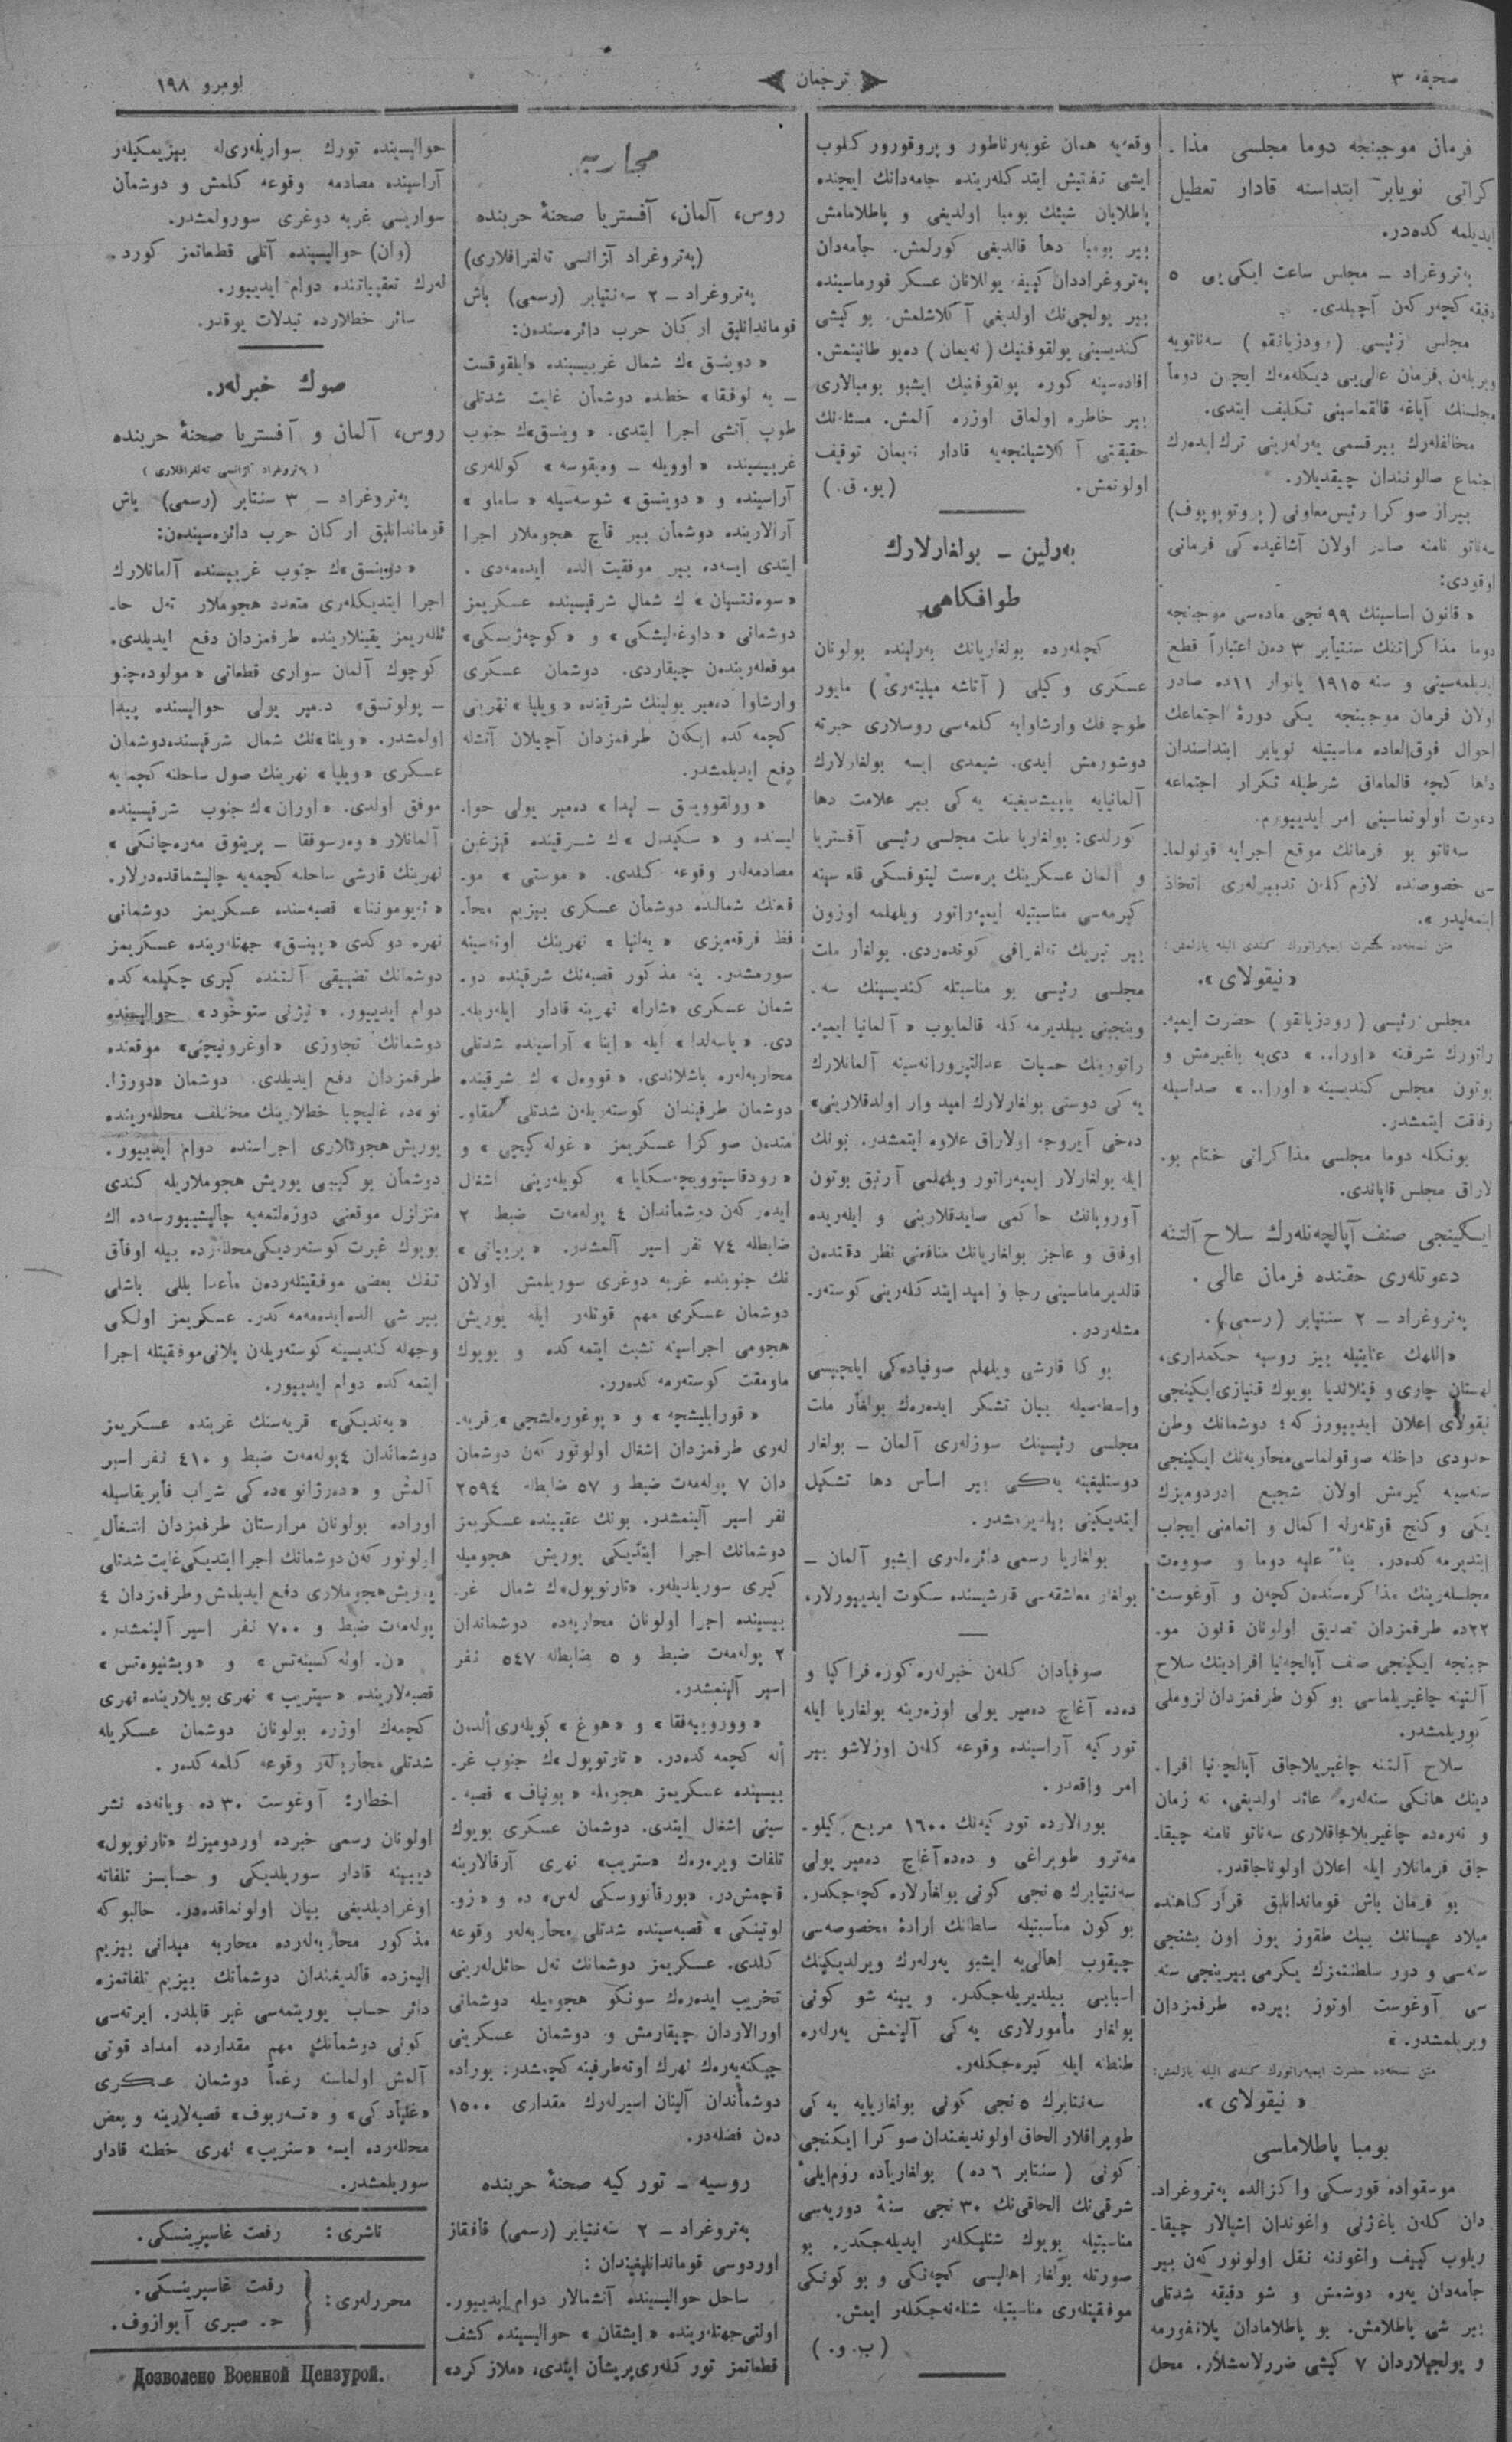 صحیفه ٣
ترجمان
نومرو ١٩٨
فرمان موجبنجه دوما مجلسی مذا-
كراتی نویابر ابتداسنه قادار تعطیل
ایدیلمه كده‌در.
په‌تروغراد – مجلس ساعت ایكی یی ٥
دقیقه كچه‌ركه‌ن آچیلدی.
مجلس رئیسی (رودزیانقو) سه‌ناتویه
ویریله‌ن فرمان عالی‌یی دیكله‌مه‌ك ایچون دوما
مجلسنك آیاغه قالقماسینی تكلیف ایتدی.
مخالفله‌رك بیر قسمی یه‌رله‌رینی ترك ایده‌رك
اجتماع صالونندان چیقدیلار.
بیراز صوكرا رئیس معاونی (پروتوپوپوف)
سه‌ناتو نامنه صادر اولان آشاغیده كی فرمانی
اوقودی:
« قانون اساسینك ٩٩ نجی ماده‌سی موجبنجه
دوما مذاكراتنك سنتیابر ٣ ده‌ن اعتباراً قطع
ایدیلمه‌سینی و سنه ١٩١٥ یانوار ١١ده صادر
اولان فرمان موجبنجه یكی دورۀ اجتماعك
احوال فوق‌العاده مناسبتیله نویابر ابتداسندان
داها كچه قالماماق شرطیله تكرار اجتماعه
دعوت اولونماسینی امر ایدییورم.
سه‌ناتو بو فرمانك موقع اجرایه قونولما-
سی خصوصنده لازم كله‌ن تدبیرله‌ری اتخاذ
ایتمه‌لیدر ».
متن نسخه‌ده حضرت ایمپه‌راتورك كندی الیله یازلمش:
« نیقولای ».
مجلس رئیسی (رودزیانقو) حضرت ایمپه-
راتورك شرفنه «اورا..» دی‌یه باغیرمش و
بوتون مجلس كندیسینه «اورا..» صداسیله
رفاقت ایتمشدر.
بونكله دوما مجلسی مذاكراتی ختام بو-
لاراق مجلس قاپاندی.
ایكینجی صنف آپالچه‌نله‌رك سلاح آلتنه
دعوتله‌ری حقنده فرمان عالی.
په‌تروغراد – ٢ سنتیابر (رسمی).
«اللهك عنایتیله بیز روسیه حكمداری،
لهستان چاری و فینلاندیا بویوك قنیازی ایكینجی
نیقولای اعلان ایدییورز كه؛ دوشمانك وطن
حدودی داخلنه صوقولماسی محاربه‌نك ایكینجی
سنه‌سینه كیرمش اولان شجیع اوردومیزك
یكی و كنج قوتله‌رله اكمال و اتمامنی ایجاب
ایتدیرمه كده‌در. بناءً علیه دوما و صووه‌ت
مجلسله‌رینك مذاكره‌سندن كچه‌ن و آوغوست
٢٢ده طرفمزدان تصدیق اولونان قانون مو-
جبنجه ایكینجی صنف آپالچه‌نیا افرادینك سلاح
آلتینه چاغیریلماسی بو كون طرفمزدان لزوملی
كوریلمشدر.
سلاح آلتنه چاغیریلاجاق آپالچه‌نیا افرا-
دینك هانكی سنه‌له‌ره عائد اولدیغی، نه زمان
و نه‌ره‌ده چاغیریلاجاقلاری سه‌ناتو نامنه چیقا-
جاق فرمانلار ایله اعلان اولوناجاقدر.
بو فرمان باش قوماندانلیق قرارگاهنده
میلاد عیسانك بیك طقوز یوز اون بشنجی
سنه‌سی و دور سلطنتمزك یكرمی بیرینجی سنه-
سی آوغوست اوتوز بیرده طرفمزدان
ویریلمشدر.»
متن نسخه‌ده حضرت ایمپه‌راتورك كندی الیله یازلمش:
« نیقولای ».
بومبا پاطلاماسی
موسقواده قورسكی واكزالده په‌تروغراد-
دان كله‌ن باغژنی واغوندان اشیالار چیقا-
ریلوب كییف واغوننه نقل اولونوركه‌ن بیر
جامه‌دان یه‌ره دوشمش و شو دقیقه شدتلی
بیر شی پاطلامش. بو پاطلامادان پلاتفورمه
و یولجیلاردان ٧ كیشی ضررلانمشلار. محل
وقعه‌یه همان غوبه‌رناطور و پروقورور كلوب
ایشی تفتیش ایتدكله‌رینده جامه‌دانك ایچنده
پاطلایان شیئك بومبا اولدیغی و پاطلامامش
بیر بومبا دها قالدیغی كورلمش. جامه‌دان
په‌تروغراددان كییفه یوللانان عسكر فورماسینده
بیر یولجی‌نك اولدیغی آكلاشلمش. بو كیشی
كندیسینی پولقوفنیك (نه‌یمان) ده‌یو طانیتمش.
افاده‌سینه كوره پولقوفنیك ایشبو بومبالاری
بیر خاطره اولماق اوزره آلمش. مسئله‌نك
حقیقتی آكلاشیلنجه‌یه قادار نه‌یمان توقیف
اولونمش. (یو. ق.)
به‌رلین – بولغارلارك
طوافكاهی
كچله‌رده بولغاریانك به‌رلینده بولونان
عسكری وكیلی (آتاشه میلیته‌ری) مایور
طوچفك وارشاوایه كلمه‌سی روسلاری حیرته
دوشورمش ایدی. شیمدی ایسه بولغارلارك
آلمانیایه یاپیشدیغینه یه‌كی بیر علامت دها
كورلدی: بولغاریا ملت مجلسی رئیسی آفستریا
و آلمان عسكرینك بره‌ست لیتوفسكی قلعه‌سینه
كیرمه‌سی مناسبتیله ایمپه‌راتور ویلهلمه اوزون
بیر تبریك ته‌لغرافی كونده‌ردی. بولغار ملت
مجلسی رئیسی بو مناسبتله كندیسینك سه-
وینجینی بیلدیرمه كله قالمایوب «آلمانیا ایمپه-
راتورینك حسیات عدالتپرورانه‌سینه آلمانلارك
یه‌كی دوستی بولغارلارك امید وار اولدقلارینی»
ده‌خی آیروجه اولاراق علاوه ایتمشدر. بونك
ایله بولغارلار ایمپه‌راتور ویلهلمی آرتیق بوتون
آوروپانك حاكمی صایدقلارینی و ایله‌ریده
اوفاق و عاجز بولغاریانك منافعنی نظر دقتدن
قالدیرماماسینی رجا و امید ایتدكله‌رینی كوسته‌ر-
مشله‌ردر.
بوكا قارشی ویلهلم صوفیاده‌كی ایلچیسی
واسطه‌سیله بیان تشكر ایده‌رك بولغار ملت
مجلسی رئیسینك سوزله‌ری آلمان – بولغار
دوستلیغینه یه‌كی بیر اساس دها تشكیل
ایتدیكینی بیلدیرمشدر.
بولغاریا رسمی دائره‌له‌ری ایشبو آلمان –
بولغار معاشقه‌سی قرشیسنده سكوت ایدییورلار.
صوفیادان كله‌ن خبرله‌ره كوره فراكیا و
ده‌ده آغاچ ده‌میر یولی اوزه‌رینه بولغاریا ایله
توركیه آراسینده وقوعه كله‌ن اوزلاشو بیر
امر واقعدر.
بورالارده توركیه‌نك ١٦٠٠ مربع كیلو-
مه‌ترو طوپراغی و ده‌ده‌آغاچ ده‌میر یولی
سه‌نتیابرك ٥ نجی كونی بولغارلاره كچه‌جكدر.
بو كون مناسبتیله سلطانك ارادۀ مخصوصه‌سی
چیقوب اهالی‌یه ایشبو یه‌رله‌رك ویرلدیكینك
اسبابی بیلدیریله‌جكدر. و یینه شو كونی
بولغار مأمورلاری یه‌كی آلینمش یه‌رله‌ره
طنطنه ایله كیره‌جكله‌ر.
سه‌نتابرك ٥ نجی كونی بولغاریایه یه‌كی
طوپراقلار الحاق اولوندیغندان صوكرا ایكنجی
كونی (سنتابر ٦ ده) بولغاریاده روم‌ایلی
شرقی‌نك الحاقی‌نك ٣٠ نجی سنۀ دوریه‌سی
مناسبتیله بویوك شنلیكله‌ر ایدیله‌جكدر. بو
صورتله بولغار اهالیسی كچه‌نكی و بو كونكی
موفقیتله‌ری مناسبتیله شنله‌نه‌جكله‌ر ایمش.
(ب. و.)
محاربه.
روس، آلمان، آفستریا صحنۀ حربنده
(په‌تروغراد آژانسی ته‌لغرافلاری)
په‌تروغراد – ٢ سه‌نتیابر (رسمی) باش
قوماندانلیق اركان حرب دائره‌سندن:
«دوینسق»ك شمال غربیسینده «ایلقوقست
– یه‌لوفقا» خطده دوشمان غایت شدتلی
طوپ آتشی اجرا ایتدی. «دوینسق»ك جنوب
غربیسینده «اوویله – وه‌یقوسه» كولله‌ری
آراسینده و «دوینسق» شوسه‌سیله «ساماو»
آرالارینده دوشمان بیر قاچ هجوملار اجرا
ایتدی ایسه‌ده بیر موفقیت الده ایده‌مه‌دی.
«سوه‌نتسیان»ك شمال شرقیسینده عسكریمز
دوشمانی «داوغه‌لیشكی» و «كوچه‌ژیسكی»
موقعله‌ریندن چیقاردی. دوشمان عسكری
وارشاوا ده‌میر یولینك شرقنده «ویلیا» نهرینی
كچمه‌كده ایكه‌ن طرفمزدان آچیلان آتشله
دفع ایدیلمشدر.
«وولقوویسق – لیدا» ده‌میر یولی حوا-
لیسنده و «سكیدل»ك شرقینده قیزغین
مصادمه‌لار وقوعه كلدی. «موستی» مو-
قعنك شمالنده دوشمان عسكری بیزیم محا-
فظ فرقه‌میزی «یه‌لنیا» نهرینك اوته‌سینه
سورمشدر. ینه مذكور قصبه‌نك شرقینده دو-
شمان عسكری «شارا» نهرینه قادار ایله‌ریله-
دی. «یاسه‌لدا» ایله «اینا» آراسینده شدتلی
محاربه‌له‌ره باشلاندی. «قووه‌ل»ك شرقینده
دوشمان طرفیندان كوسته‌ریله‌ن شدتلی مقاو-
متدن صوكرا عسكریمز «غوله‌كیچی» و
«رودقاسیتوویچه‌سكایا» كویله‌رینی اشغال
ایده‌ركه‌ن دوشماندان ٤ پوله‌مه‌ت ضبط ٢
ضابطله ٧٤ نفر اسیر آلمشدر. «پریپاتی»
نك جنوبنده غربه دوغری سوریلمش اولان
دوشمان عسكری مهم قوتله‌ر ایله یوریش
هجومی اجراسینه تشبث ایتمه‌كده و بویوك
مقاومت كوسته‌رمه كده‌در.
«قورابلیشچه» و «پوغوره‌لتسی» قریه-
له‌ری طرفمزدان اشغال اولونوركه‌ن دوشمان
دان ٧ پوله‌مه‌ت ضبط و ٥٧ ضابطله ٢٥٩٤
نفر اسیر آلینمشدر. بونك عقیبینده عسكریمز
دوشمانك اجرا ایتدیكی یوریش هجومیله
كیری سوریلدیله‌ر. «تارنوپول»ك شمال غر-
بیسینده اجرا اولونان محاربه‌ده دوشماندان
٢ پوله‌مه‌ت ضبط و ٥ ضابطله ٥٤٧ نفر
اسیر آلینمشدر.
«ووروبیه‌فقا» و «هوغ» كویله‌ری ألدن
أله كچمه كده‌در. «تارنوپول»ك جنوب غر-
بیسینده عسكریمز هجومله «یونیاف» قصبه-
سینی اشغال ایتدی. دوشمان عسكری بویوك
تلفات ویره‌رك «ستریپ» نهری آرقالارینه
قاچمش‌در. «بورقانووسكی له‌س» ده و «زو-
لوتینكی» قصبه‌سینده شدتلی محاربه‌له‌ر وقوعه
كلدی. عسكریمز دوشمانك ته‌ل حائل‌له‌رینی
تخریب ایده‌رك سونكو هجومیله دوشمانی
اورالاردان چیقارمش و دوشمان عسكرینی
چیكنه‌یه‌رك نهرك اوته‌طرفینه كچمشدر. بوراده
دوشماندان آلینان اسیرله‌رك مقداری ١٥٠٠
ده‌ن فضله‌در.
روسیه – توركیه صحنۀ حربنده
په‌تروغراد – ٢ سه‌نتیابر (رسمی) قافقاز
اوردوسی قوماندانلیغیندان:
ساحل حوالیسینده آتشمالار دوام ایدییور.
اولتی‌جهتله‌رینده «ایشقان» حوالیسینده كشف
قطعاتمز توركله‌ری پریشان ایتدی، «ملازكرد»
حوالیسینده تورك سواریله‌ری‌له بیزیمكیله‌ر
آراسینده مصادمه وقوعه كلمش و دوشمان
سواریسی غربه دوغری سورولمشدر.
(وان) حوالیسینده آتلی قطعاتمز كورد-
له‌رك تعقیباتنده دوام ایدییور.
سائر خطلارده تبدلات یوقدر.
صوك خبرله‌ر.
روس، آلمان و آفستریا صحنۀ حربنده
(په‌تروغراد آژانسی ته‌لغرافلاری)
په‌تروغراد – ٣ سنتابر (رسمی) باش
قوماندانلیق اركان حرب دائره‌سیندن:
«دوینسق»ك جنوب غربیسنده آلمانلارك
اجرا ایتدیكله‌ری متعدد هجوملار ته‌ل حا-
ئله‌ریمز یقینلارینده طرفمزدان دفع ایدیلدی.
كوچوك آلمان سواری قطعاتی «مولوده‌چنو
– پولوتسق» دمیر یولی حوالیسنده پیدا
اولمشدر. «ویلنا»نك شمال شرقیسنده دوشمان
عسكری «ویلیا» نهرینك صول ساحلنه كچمایه
موفق اولدی. «اوران»ك جنوب شرقیسینده
آلمانلار «وه‌رسوفقا – پریتوق مه‌ره‌چانكی»
نهرینك قارشی ساحلنه كچمه‌یه چالیشماقده‌درلار.
قصبه‌سنده عسكریمز دوشمانی
نهره دوكدی «پینسق» جهتله‌رینده عسكریمز
دوشمانك تضییقی آلتنده كیری چكیلمه كده
دوام ایدییور. «نیژنی ستوخود» حوالیسنده
دوشمانك تجاوزی «اوغرونیچی» موقعنده
طرفمزدان دفع ایدیلدی. دوشمان «دورژا-
نو»ده غالیچیا خطلارینك مختلف محلله‌رینده
یوریش هجوملاری اجراسنده دوام ایدییور.
دوشمان بو كیبی یوریش هجوملاریله كندی
متزلزل موقعنی دوزه‌لتمه‌یه چالیشییورسه‌ده اك
بویوك غیرت كوسته‌ردیكی محللرده بیله اوفاق
تفك بعضی موفقیتله‌ردن ماعدا بللی باشلی
بیر شی الده ایده‌مه‌مه كده‌در. عسكریمز اولكی
وجهله كندیسینه كوسته‌ریله‌ن پلانی موفقیتله اجرا
ایتمه كده دوام ایدییور.
«به‌ندیكی» قریه‌سنك غربنده عسكریمز
دوشماندان ٤ پوله‌مه‌ت ضبط و ٤١٠ نفر اسیر
آلمش و «ده‌رژانو»ده كی شراب فابریقاسیله
اوراده بولونان مزارستان طرفمزدان اشغال
اولونوركه‌ن دوشمانك اجرا ایتدیكی غایت شدتلی
یوریش هجوملاری دفع ایدیلمش و طرفمزدان ٤
پوله‌مه‌ت ضبط و ٧٠٠ نفر اسیر آلینمشدر.
«ن. اوله‌كسینه‌تس» و «ویشنیوه‌تس»
قصبه‌لارینده «ستریپ» نهری بویلارینده نهری
كچمه‌ك اوزره بولونان دوشمان عسكریله
شدتلی محاربه‌له‌ر وقوعه كلمه كده‌در.
اخطار: آوغوست ٣٠ ده ویانه‌ده نشر
اولونان رسمی خبرده اوردومیزك «تارنوپول»
دیبینه قادار سوریلدیكی و حسابسز تلفاته
اوغرادیلدیغی بیان اولونماقده‌در. حالبوكه
مذكور محاربه‌له‌رده محاربه میدانی بیزیم
الیمزده قالدیغندان دوشمانك بیزیم تلفاتمزه
دائر حساب یوریتمه‌سی غیر قابلدر. ایرته‌سی
كونی دوشمانك مهم مقدارده امداد قوتی
آلمش اولماسنه رغماً دوشمان عسكری
«غلیادكی» و «تسه‌بروف» قصبه‌لارینه و بعض
محلله‌رده ایسه «ستریپ» نهری خطنه قادار
سوریلمشدر.
ناشری: رفعت غاسپرینسكی.
محررلری: رفعت غاسپرینسكی.
ح. صبری آیوازوف.
Дозволено Военной Цензурой.